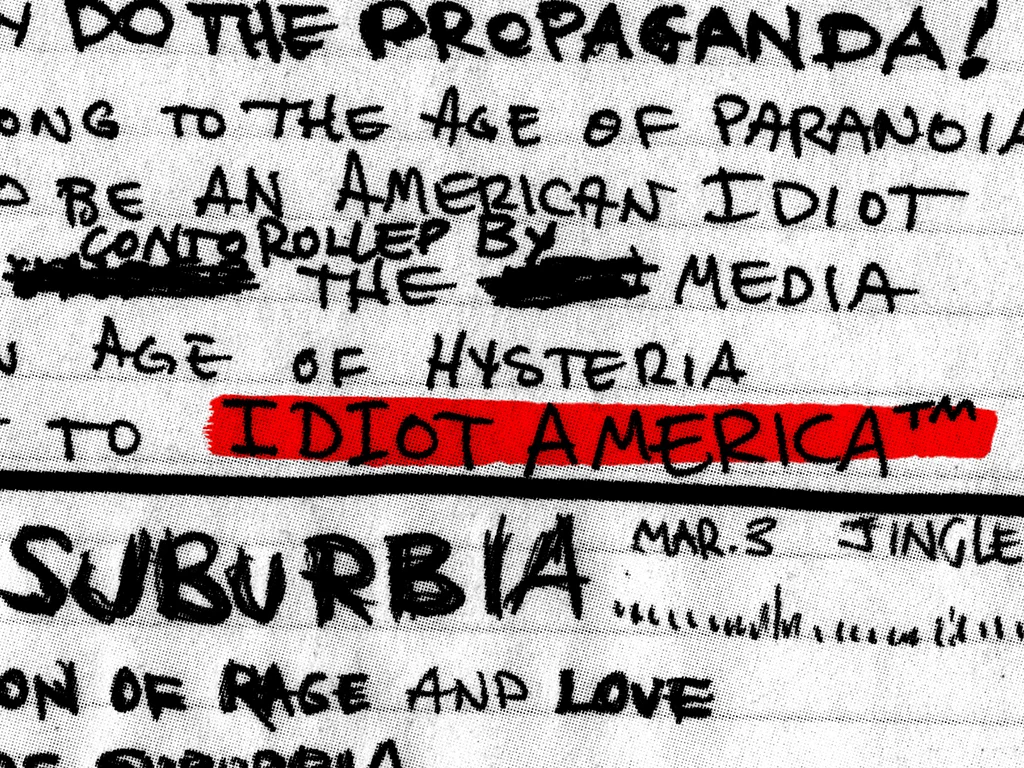 DO THE PROPAGANDA!
ONG TO THE AGE OF PARANOIA
BE AN AMERICAN IDIOT
CONTROLLED BY
THE MEDIA
AGE OF HYSTERIA
TO IDIOT AMERICA™
SUBURBIA MAR. 3 JINGLE
ON OF RAGE AND LOVE
OF SUBURBIA